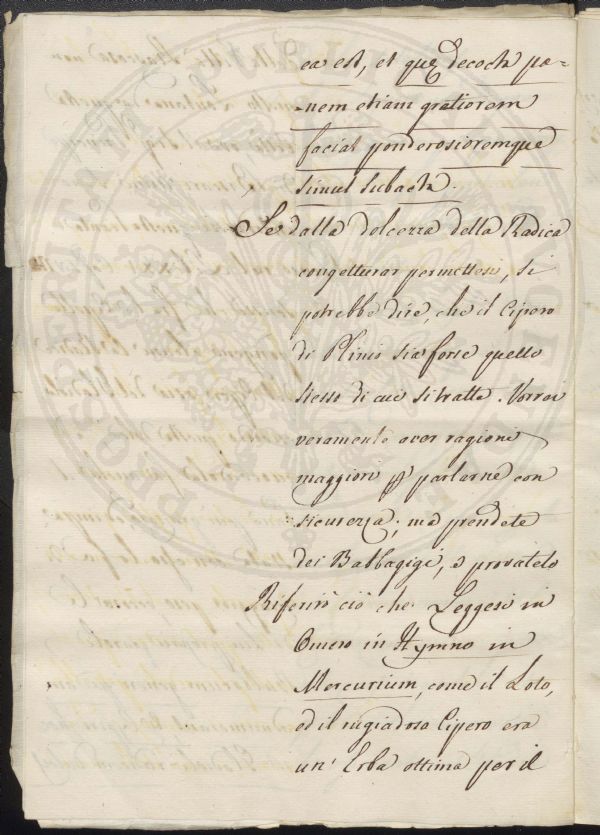 ea est, et quę decocta pa=
=nem etiam gratiorem
faciat ponderosioremque
simul subacta.
Se dalla dolcezza della Radica
congetturar permettesi, si
potrebbe dire, che il Cipero
di Plinio sia forse quello
stesso di cui si tratta. Vorrei
veramente aver ragioni
maggiori p parlarne con
sicurezza; ma prendete
dei Babbagigi, e provatelo
Riferirò ciò che Leggesi in
Omero in Hymno in
Mercurium, come il Loto,
ed il rugiadoso Cipero era
un' Erba ottima per il